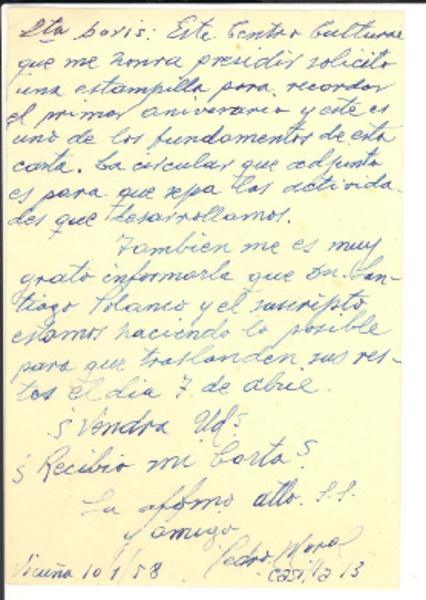 Sta Doris: Este Centro Cultural
que me honra presidir solicito
una estampilla para recordar
el primer aniversario y este es
uno de los fundamentos de esta
carta. La circular que adjunto
es para que sepa las activida-
des que desarrollamos.
Tambien me es muy
grato informarla que Dn. San-
tiago Polanco y el suscripto
estamos haciendo lo posible
para que trasladen sus res-
tos el dia 7 de abril.
¿Vendra Ud?
¿Recibio mi Carta?
La afmo atto. S.S.
y amigo
Pedro Moral
Vicuña 10/1/58 Casilla 13